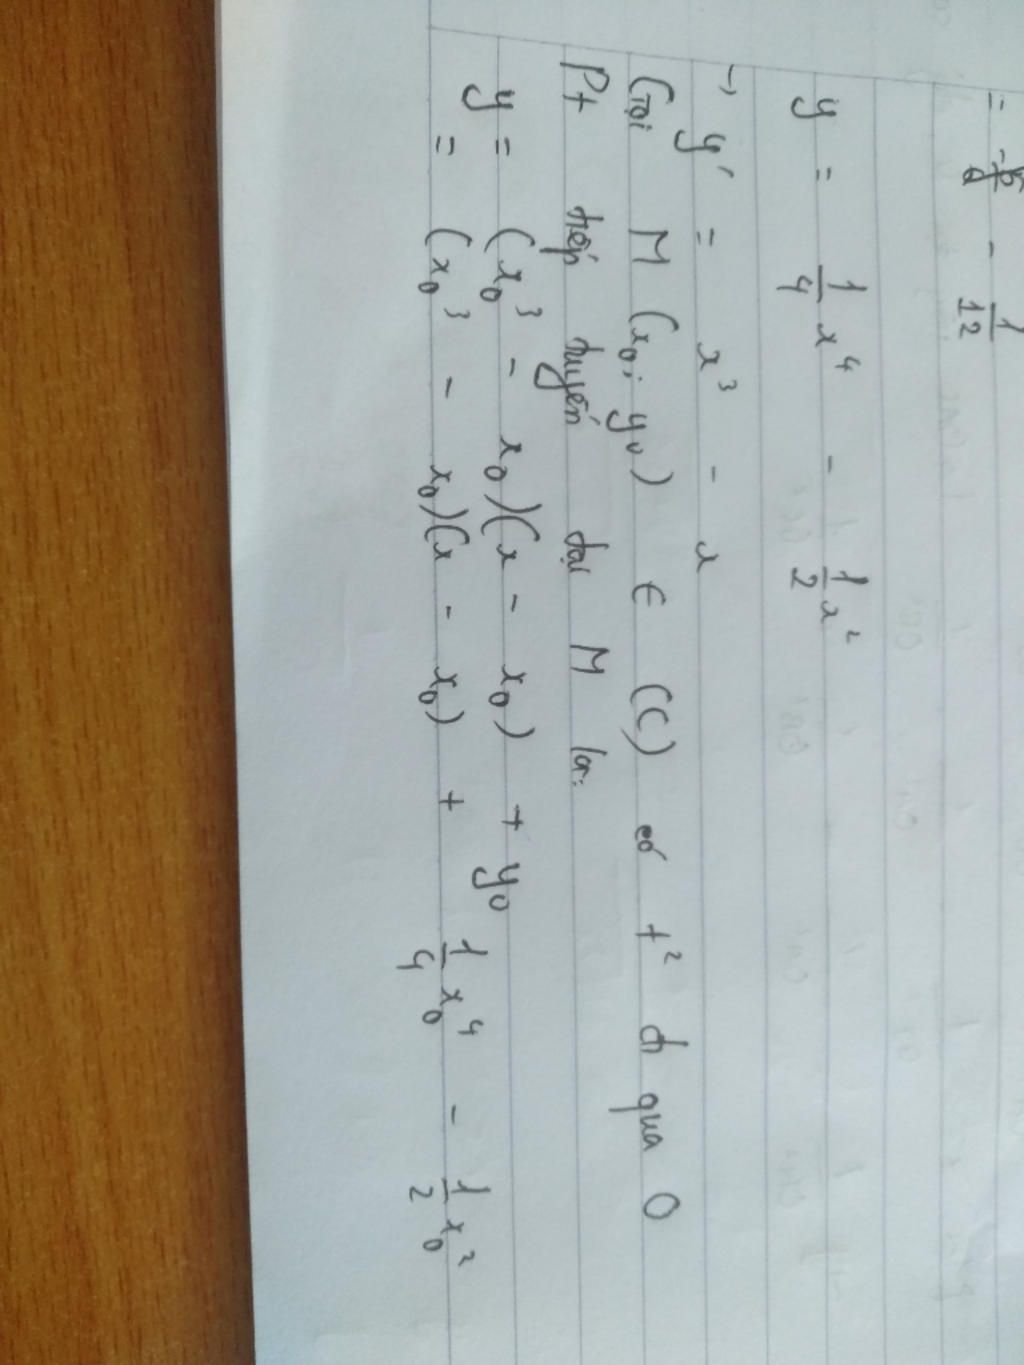 = -b/a - 1/12
y = 1/4 x⁴ - 1/2 x²
→ y' = x³ - x
Gọi M (x₀; y₀) ∈ (C) có t² đi qua O
Pt tiếp tuyến tại M là:
y = (x₀³ - x₀)(x - x₀) + y₀
= (x₀³ - x₀)(x - x₀) + 1/4 x₀⁴ - 1/2 x₀²